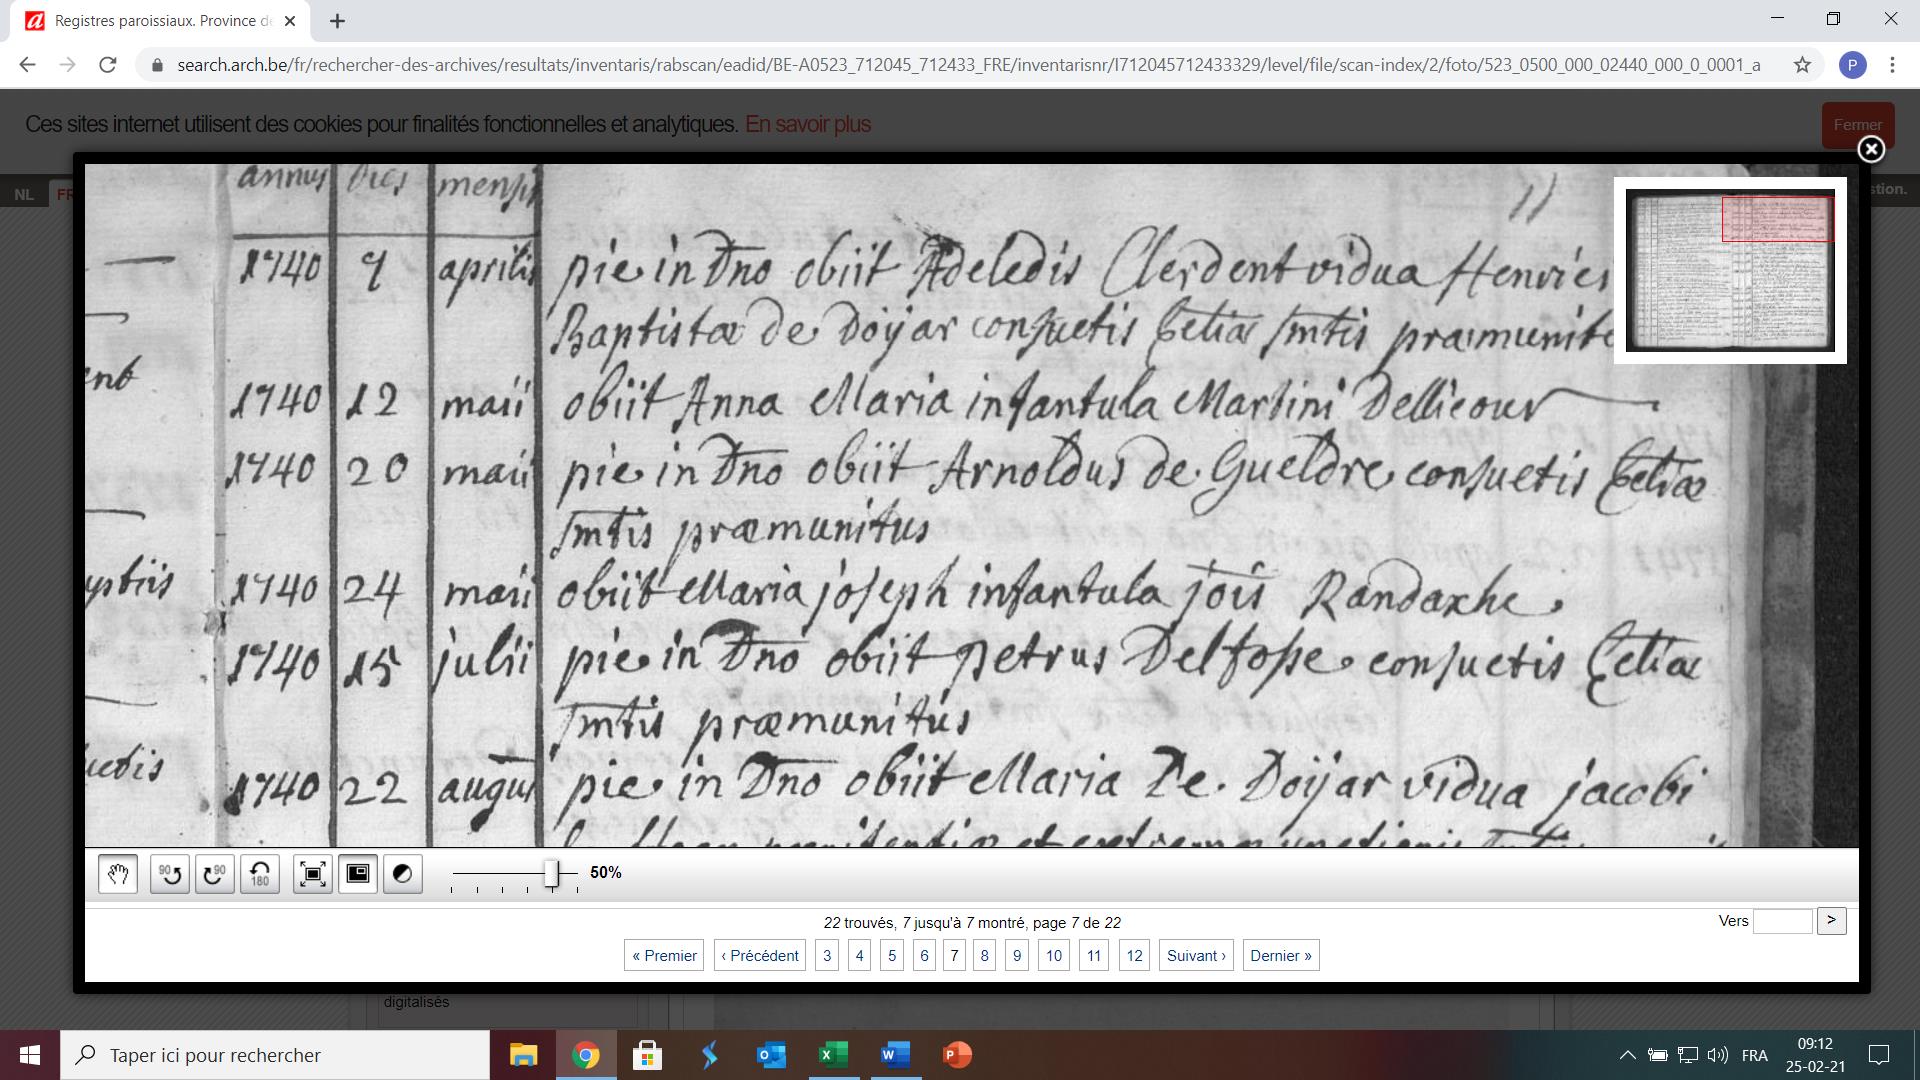 Registres paroissiaux. Province de
search.arch.be/fr/rechercher-des-archives/resultats/inventaris/rabscan/eadid/BE-A0523_712045_712433_FRE/inventarisnr/I712045712433329/level/file/scan-index/2/foto/523_0500_000_02440_000_0_0001_a
P
Ces sites internet utilisent des cookies pour finalités fonctionnelles et analytiques. En savoir plus
Fermer
NL FR stion.
annus dies mensis
11
1740 9 aprilis pie in Dno obiit Adeledis Clerdent vidua Henrici
Baptistæ de Doijar consuetis Ecliæ Smtis præmunit
1740 12 maii obiit Anna Maria infantula Martini Dellicour
1740 20 maii pie in Dno obiit Arnoldus de Gueldre consuetis Ecliæ
Smtis præmunitus
1740 24 maii obiit Maria joseph infantula jois Randaxhe
1740 15 julii pie in Dno obiit petrus Delfosse consuetis Ecliæ
Smtis præmunitus
1740 22 augus pie in Dno obiit Maria De Doijar vidua jacobi
90 90 180
50%
22 trouvés, 7 jusqu'à 7 montré, page 7 de 22
Vers >
« Premier ‹ Précédent 3 4 5 6 7 8 9 10 11 12 Suivant › Dernier »
digitalisés
Taper ici pour rechercher
FRA
09:12
25-02-21